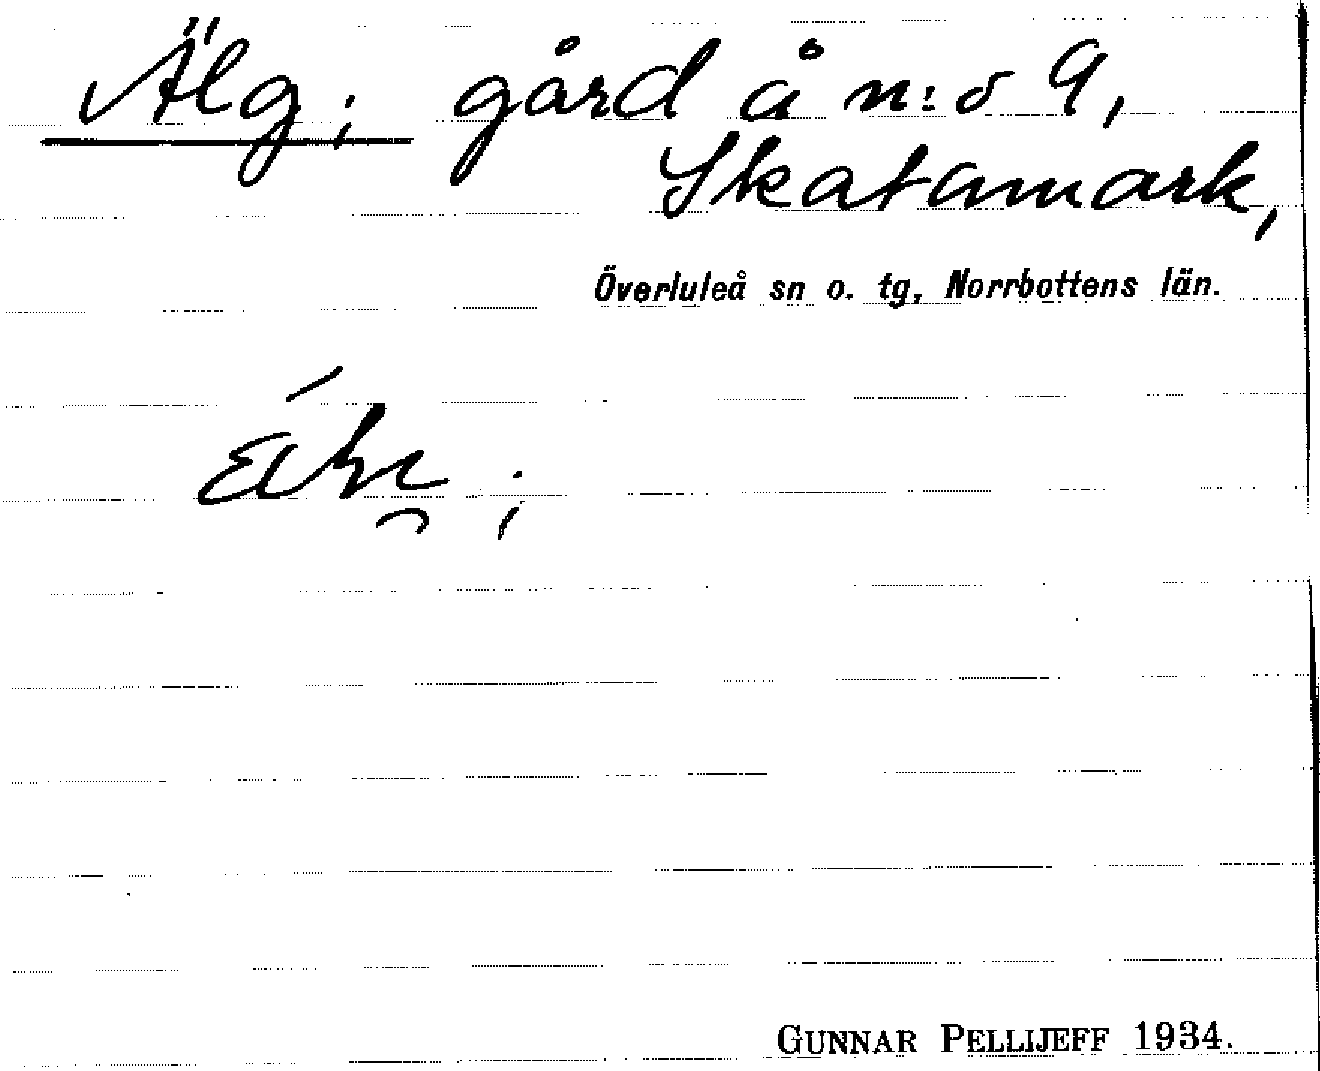 Älg; gård å n:o 9,
Skatamark,
Överluleå sn o. tg, Norrbottens län.
GUNNAR PELLIJEFF 1934.